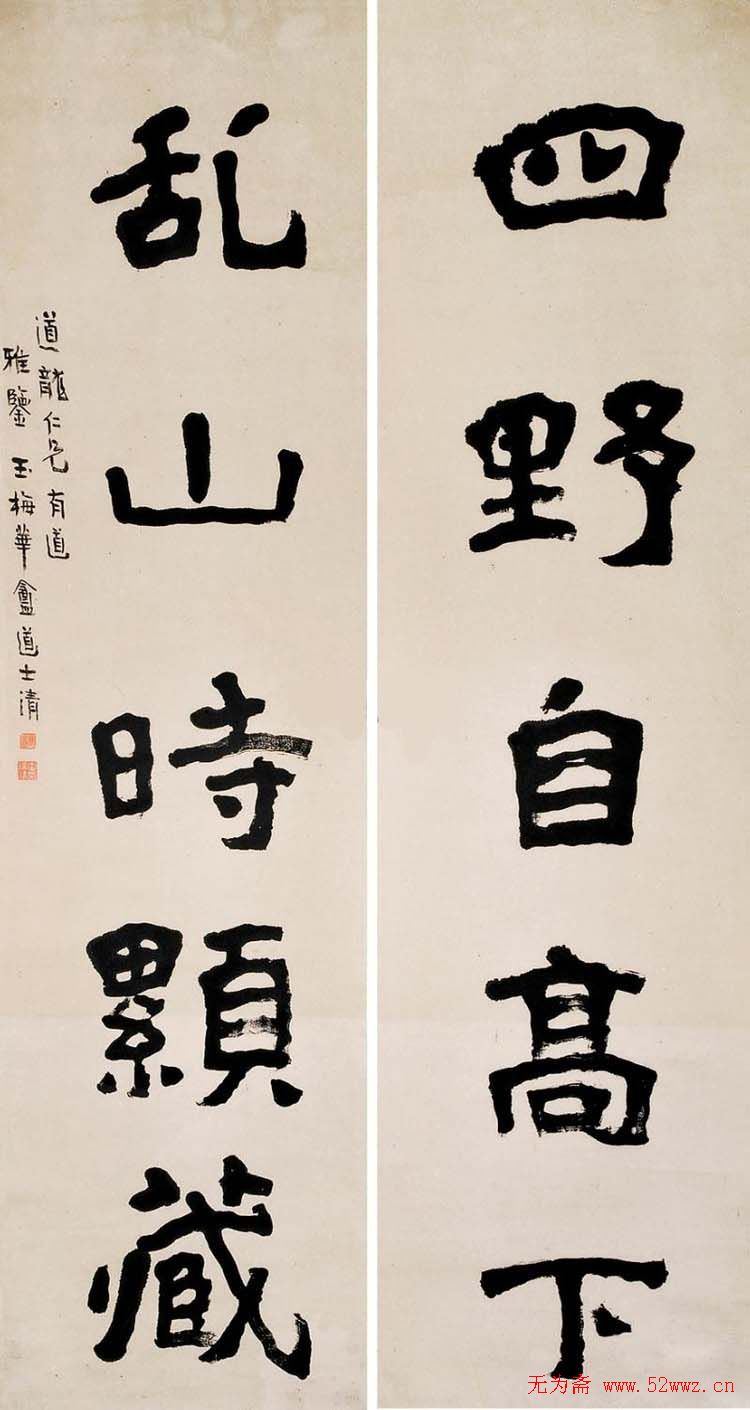 四野自高下
乱山時顯藏
道龍仁兄有道
雅鑒玉梅華盦道士清
无为斋 www.52wwz.cn